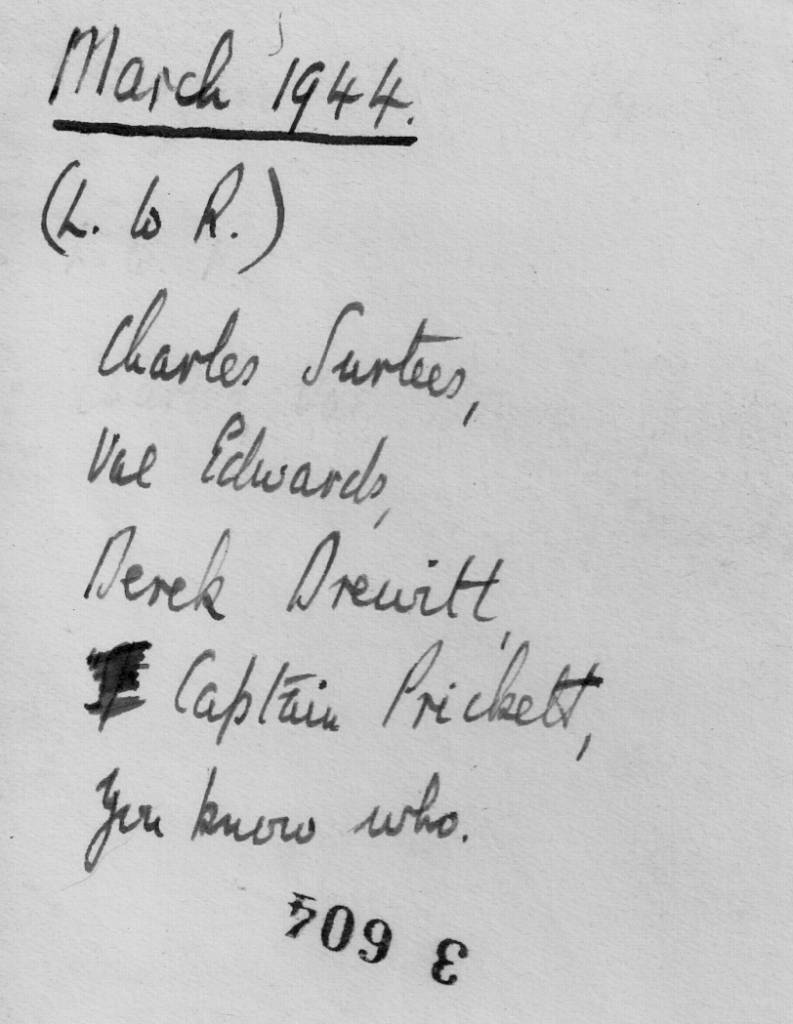 March 1944.
(L. to R.)
Charles Surtees,
Val Edwards,
Derek Drewitt,
Captain Prickett,
You know who.